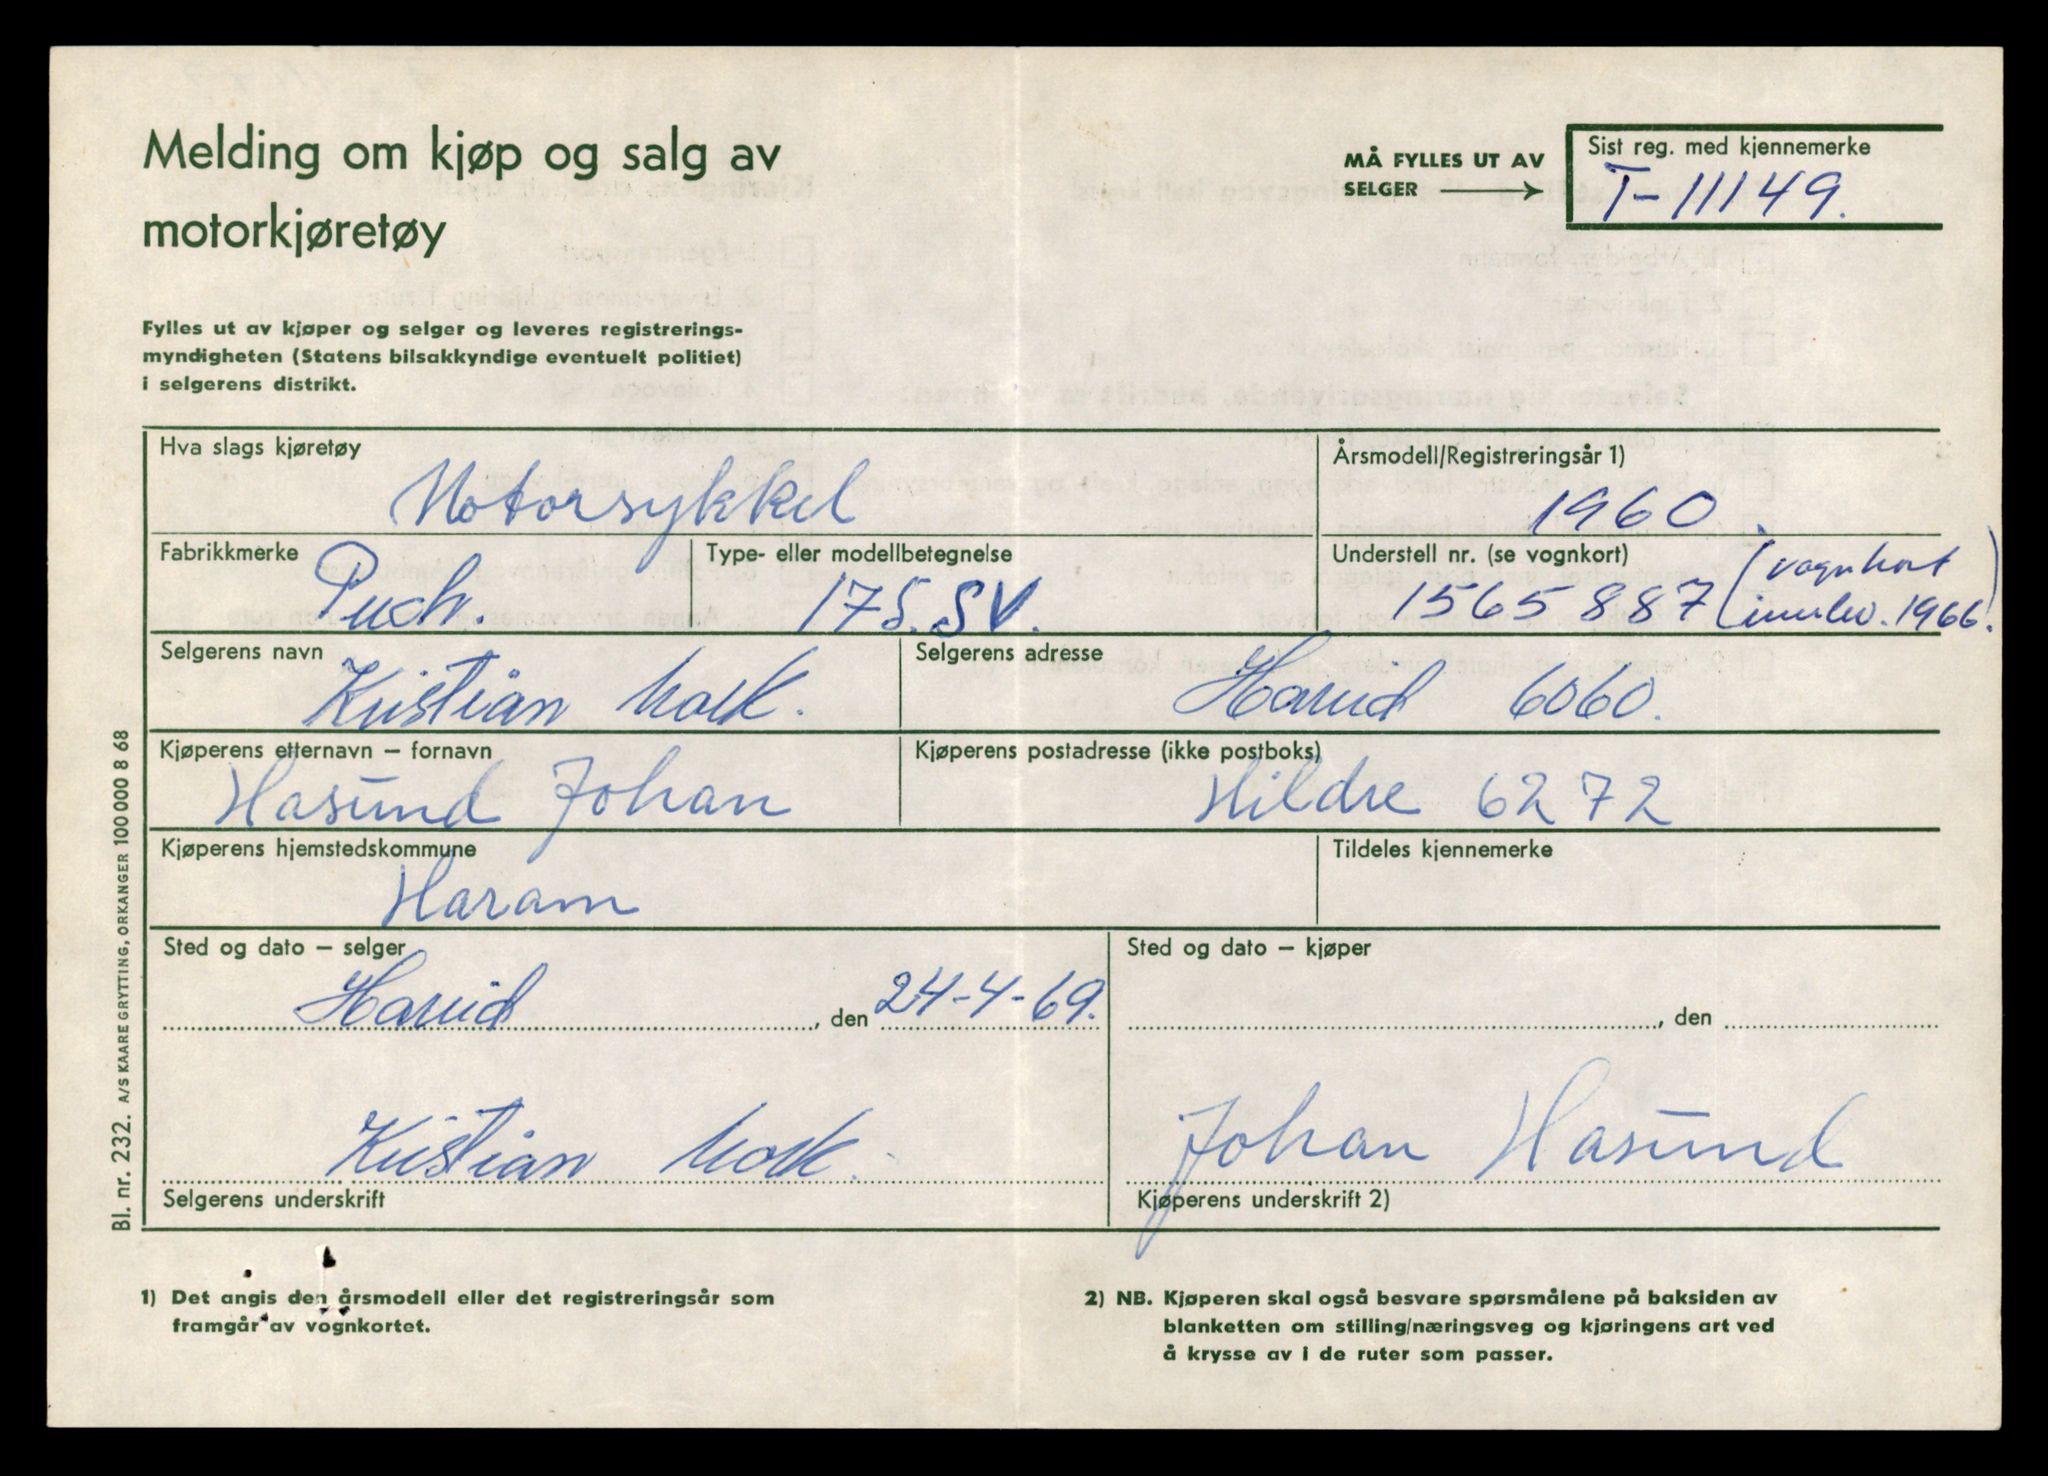 Melding om kjøp og salg av
motorkjøretøy
MÅ FYLLES UT AV
SELGER
Sist reg. med kjennemerke
T-11149.
Fylles ut av kjøper og selger og leveres registrerings-
myndigheten (Statens bilsakkyndige eventuelt politiet)
i selgerens distrikt.
Hva slags kjøretøy
Motorsykkel
Årsmodell/Registreringsår 1)
1960.
Fabrikkmerke
Puch.
Type- eller modellbetegnelse
175. SV.
Understell nr. (se vognkort)
1565887 (vognkort
innlev. 1966.)
Selgerens navn
Kristian Mork.
Selgerens adresse
Hareid 6060.
Kjøperens etternavn – fornavn
Hasund Johan
Kjøperens postadresse (ikke postboks)
Hildre 6272
Kjøperens hjemstedskommune
Haram
Tildeles kjennemerke
Sted og dato – selger
Hareid, den 24-4-69.
Sted og dato – kjøper
, den
Kristian Mork.
Selgerens underskrift
Johan Hasund
Kjøperens underskrift 2)
Bl. nr. 232. A/S KAARE GRYTTING, ORKANGER 100 000 8 68
1) Det angis den årsmodell eller det registreringsår som
framgår av vognkortet.
2) NB. Kjøperen skal også besvare spørsmålene på baksiden av
blanketten om stilling/næringsveg og kjøringens art ved
å krysse av i de ruter som passer.